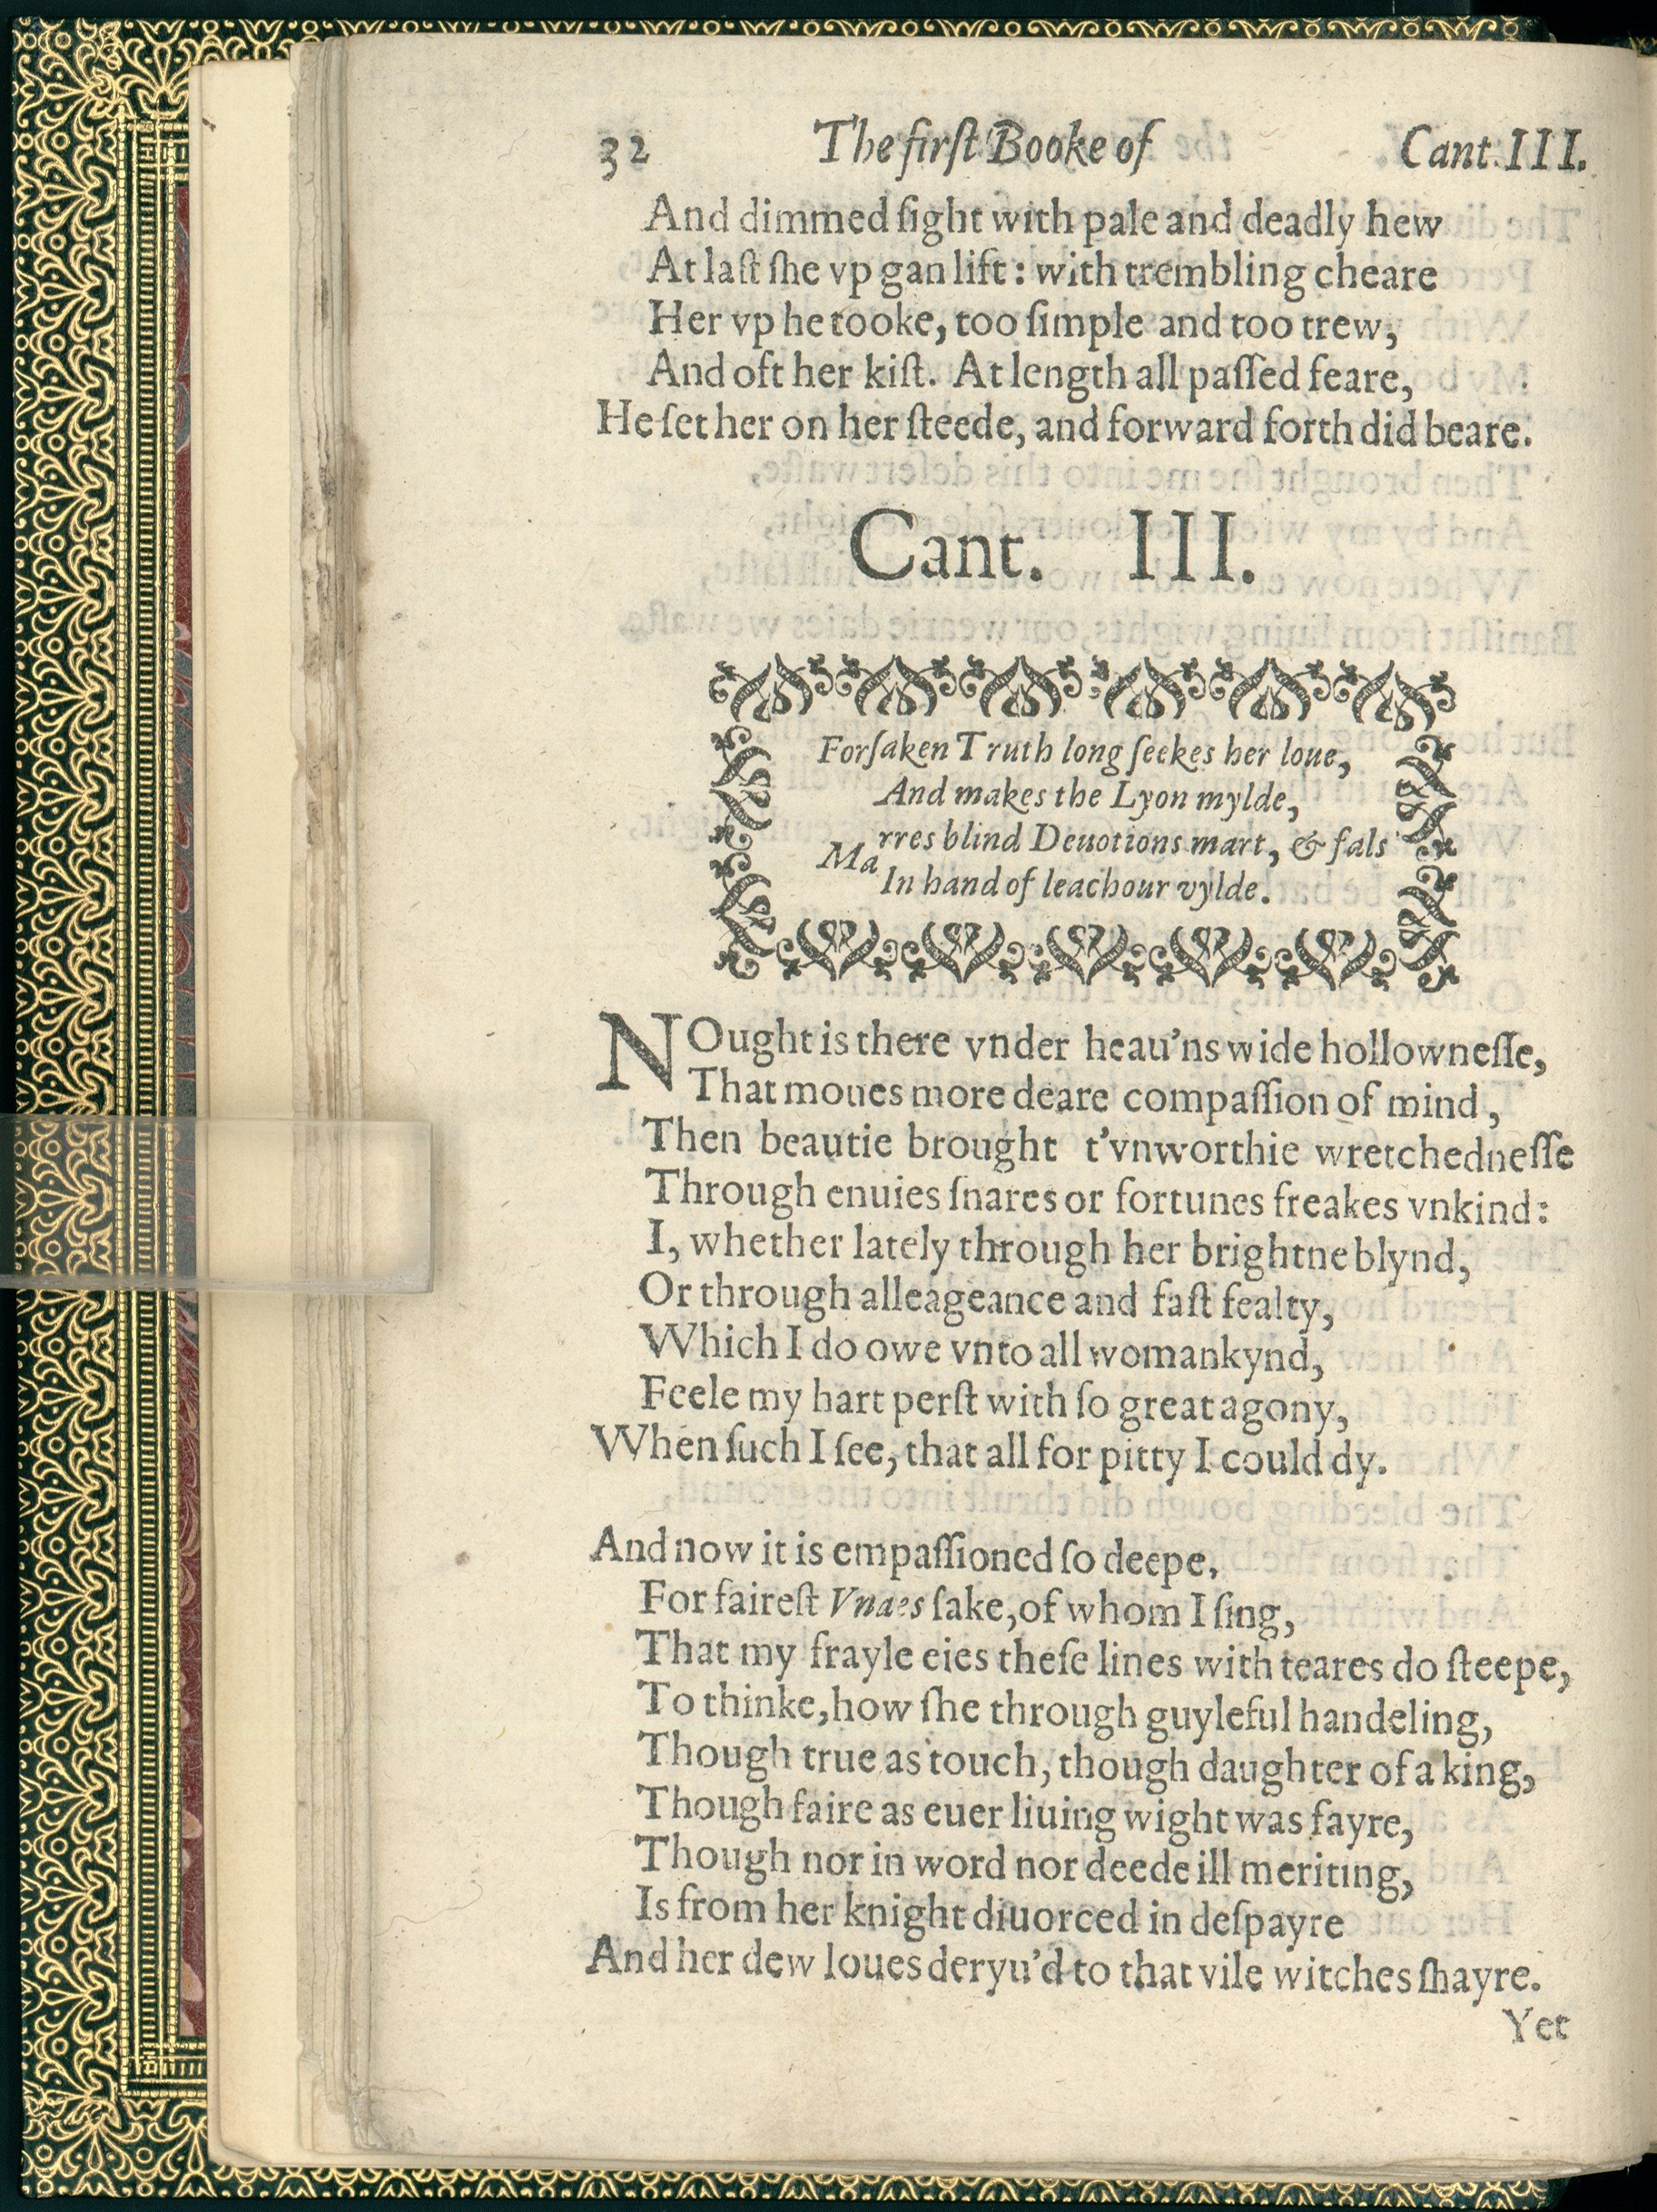 32 The firſt Booke of Cant. III.
And dimmed ſight with pale and deadly hew
At laſt ſhe vp gan lift: with trembling cheare
Her vp he tooke, too ſimple and too trew,
And oft her kiſt. At length all paſſed feare,
He ſet her on her ſteede, and forward forth did beare.
Cant. III.
Forſaken Truth long ſeekes her loue,
And makes the Lyon mylde,
Marres blind Deuotions mart, & fals
In hand of leachour vylde.
NOught is there vnder heau'ns wide hollowneſſe,
That moues more deare compaſſion of mind,
Then beautie brought t'vnworthie wretchedneſſe
Through enuies ſnares or fortunes freakes vnkind:
I, whether lately through her brightne blynd,
Or through alleageance and faſt fealty,
Which I do owe vnto all womankynd,
Feele my hart perſt with ſo great agony,
When ſuch I ſee, that all for pitty I could dy.
And now it is empaſſioned ſo deepe,
For faireſt Vnaes ſake, of whom I ſing,
That my frayle eies theſe lines with teares do ſteepe,
To thinke, how ſhe through guyleful handeling,
Though true as touch, though daughter of a king,
Though faire as euer liuing wight was fayre,
Though nor in word nor deede ill meriting,
Is from her knight diuorced in deſpayre
And her dew loues deryu'd to that vile witches ſhayre.
Yet